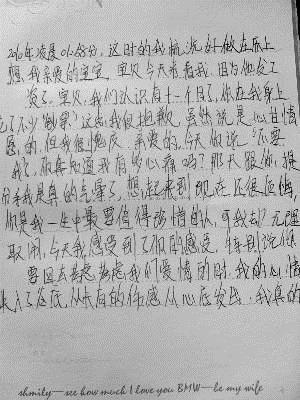 2010年凌晨01:58分,这时的我梳洗好做在床上
想我亲爱的宝宝 宝贝今天来看我,因为他发工
资了,宝贝,我们认识有十一个月了,你在我身上
花了不少"钞票"这点我很抱歉,虽然说是心甘情
愿的但我很愧疚,亲爱的,今天你说"不要
我了,你真知道我有多心痛吗?那天跟你提
分手我是真的气晕了,想起来到现在还很后悔,
你是我一生中最要值得珍惜的人,可我却17无理
取闹,今天我感受到了你的感受,特别说你
要回去考虑考虑我们爱情的时,我的心情
失入了谷底,从未有的伤感从心底发出,我真的
shmily—see how much I love you BMW—be my wife